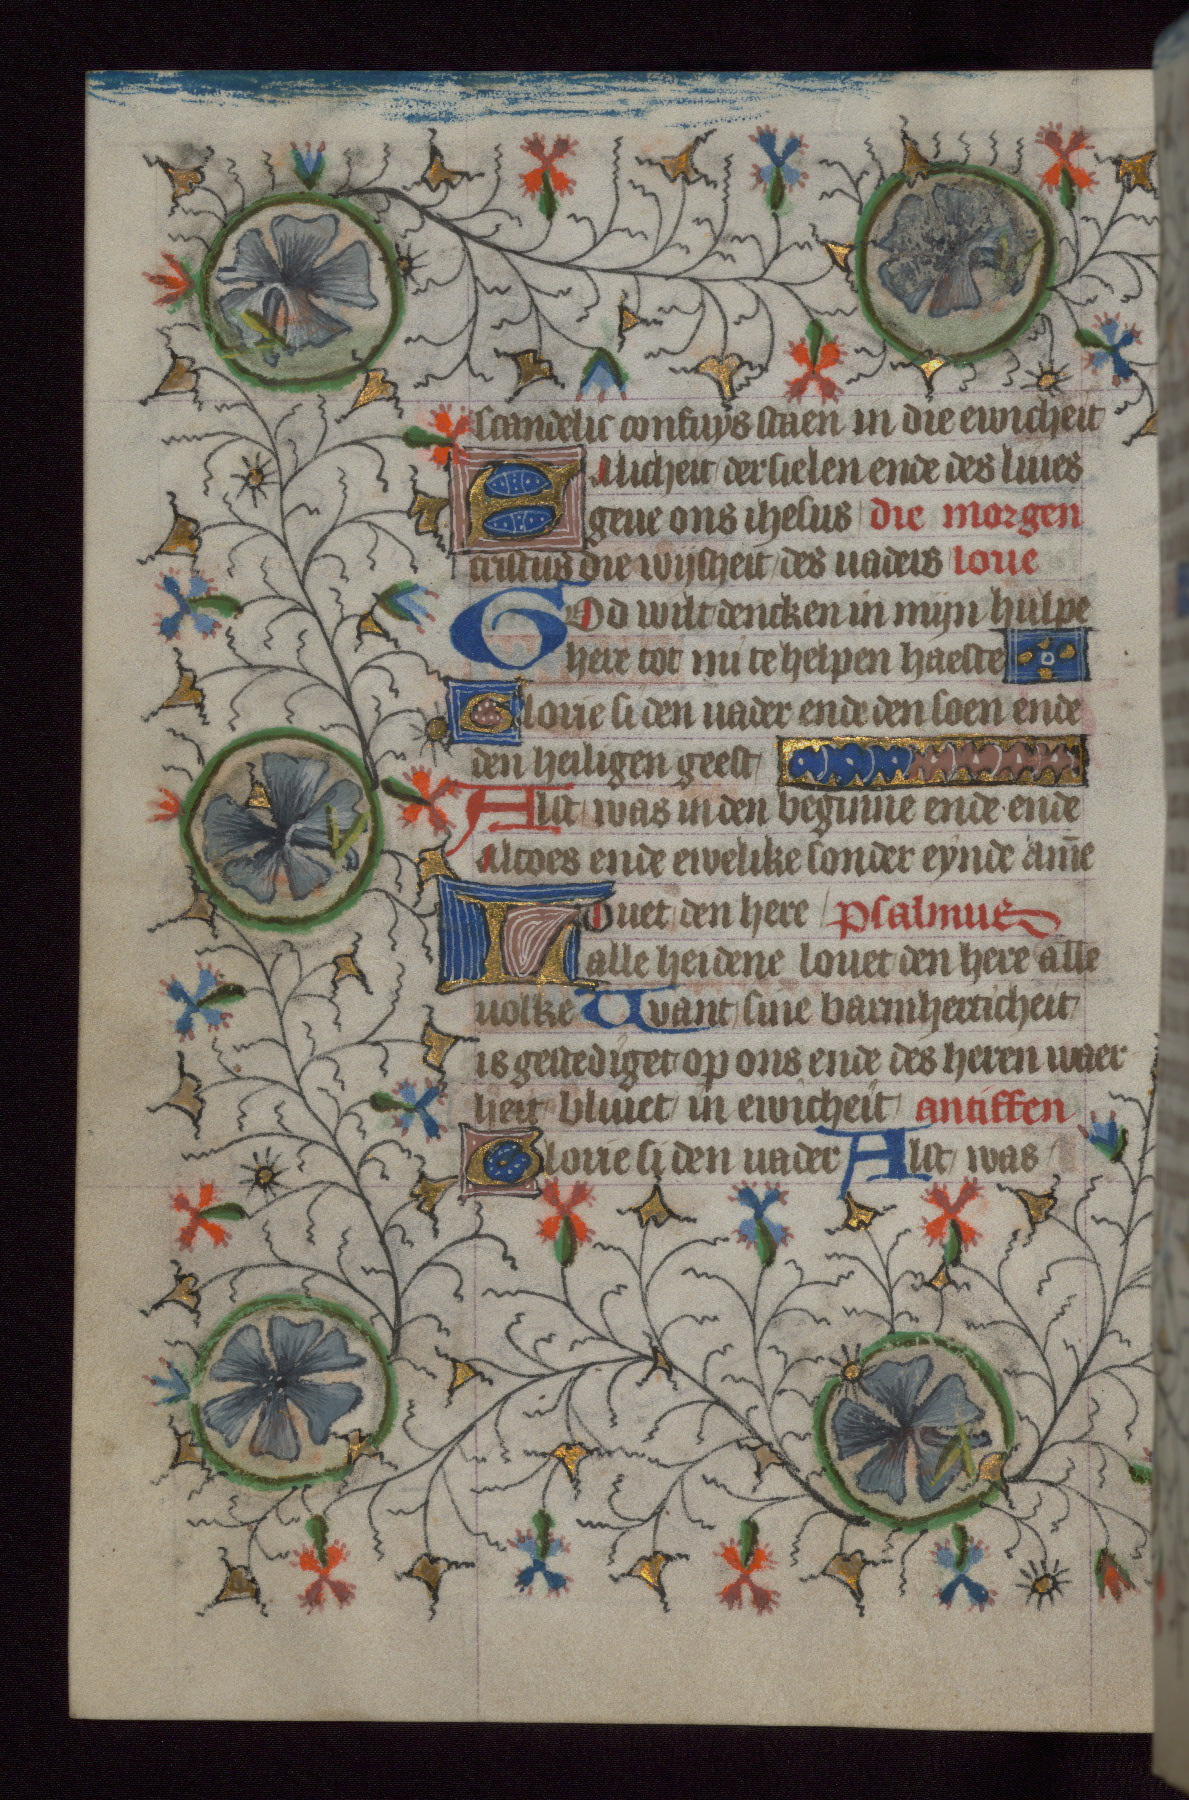 scandelic confuys staen in die ewicheit
Salicheit der sielen ende des liues
geue ons ihesus die morgen
cristus die wijsheit des uaders loue
God wilt dencken in mijn hulpe
here tot mi te helpen haeste
Glorie si den uader ende den soen ende
den heiligen geest
Alst was in den beginne ende ende
altoes ende ewelike sonder eynde ame̅
Louet den here psalmus
alle heidene louet den here alle
uolke want sine barmherticheit
is gestediget op ons ende des heren waer
heit bliuet in ewicheit antiffen
Glorie si den uader Alst was